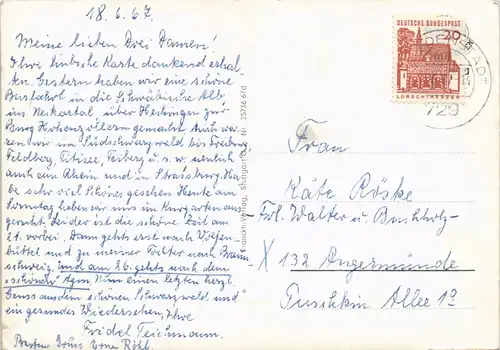 18.6.67.
Meine lieben Drei Damen!
Ihre hübsche Karte dankend erhal-
ten. Gestern haben wir eine schöne
Busfahrt in die Schwäbische Alb
ins Neckartal über Hechingen zur
Burg Hohenzollern gemacht. Auch wa-
ren wir im Südschwarzwald bis Freiburg
Feldberg, Titisee, Triberg u.s.w. neulich
auch am Rhein und in Strassburg. Ha-
be sehr viel Schönes gesehen. Heute am
Sonntag haben wir uns im Kurgarten aus-
geruht. Leider ist die schöne Zeit am
21. vorbei. Dann gehts erst nach Wolfen-
büttel und zu meiner Tochter nach Braun
schweig, und am 26. gehts nach dem
"schönen" Agm. Nun einen letzten herzl.
Gruss aus dem schönen Schwarzwald und
ein gesundes Wiedersehen, Ihre
Fridel Teichmann.
Besten Gruss Erna Röhl.
Franckh-Verlag, Stuttgart Nr. 25736 67d
DEUTSCHE BUNDESPOST
20
LORSCH/HESSEN
729
Frau
Käte Röske
Frl. Walter u. Buchholz
X 132 Angermünde
Puschkin Allee 1a